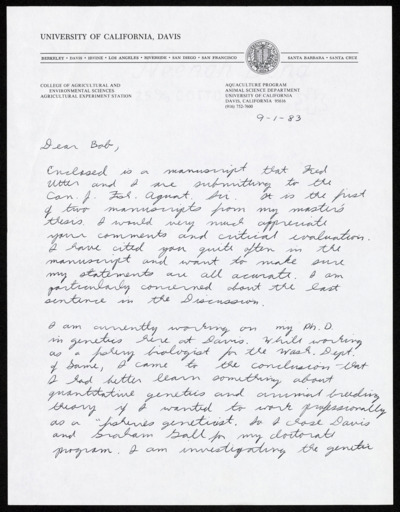 UNIVERSITY OF CALIFORNIA, DAVIS
BERKELEY • DAVIS • IRVINE • LOS ANGELES • RIVERSIDE • SAN DIEGO • SAN FRANCISCO
SANTA BARBARA • SANTA CRUZ
COLLEGE OF AGRICULTURAL AND
ENVIRONMENTAL SCIENCES
AGRICULTURAL EXPERIMENT STATION
AQUACULTURE PROGRAM
ANIMAL SCIENCE DEPARTMENT
UNIVERSITY OF CALIFORNIA
DAVIS, CALIFORNIA 95616
(916) 752-7600
9-1-83
Dear Bob,
Enclosed is a manuscript that Fred
Utter and I are submitting to the
Can. J. Fish. Aquat. Sci. It is the first
of two manuscripts from my master's
thesis. I would very much appreciate
your comments and critical evaluation.
I have cited you quite often in the
manuscript and want to make sure
my statements are all accurate. I am
particularly concerned about the last
sentence in the Discussion.
I am currently working on my Ph.D.
in genetics here at Davis. While working
as a fishery biologist for the Wash. Dept.
of Game, I came to the conclusion that
I had better learn something about
quantitative genetics and animal breeding
theory if I wanted to work professionally
as a "fisheries geneticist." So I chose Davis
and Graham Gall for my doctorate
program. I am investigating the genetic